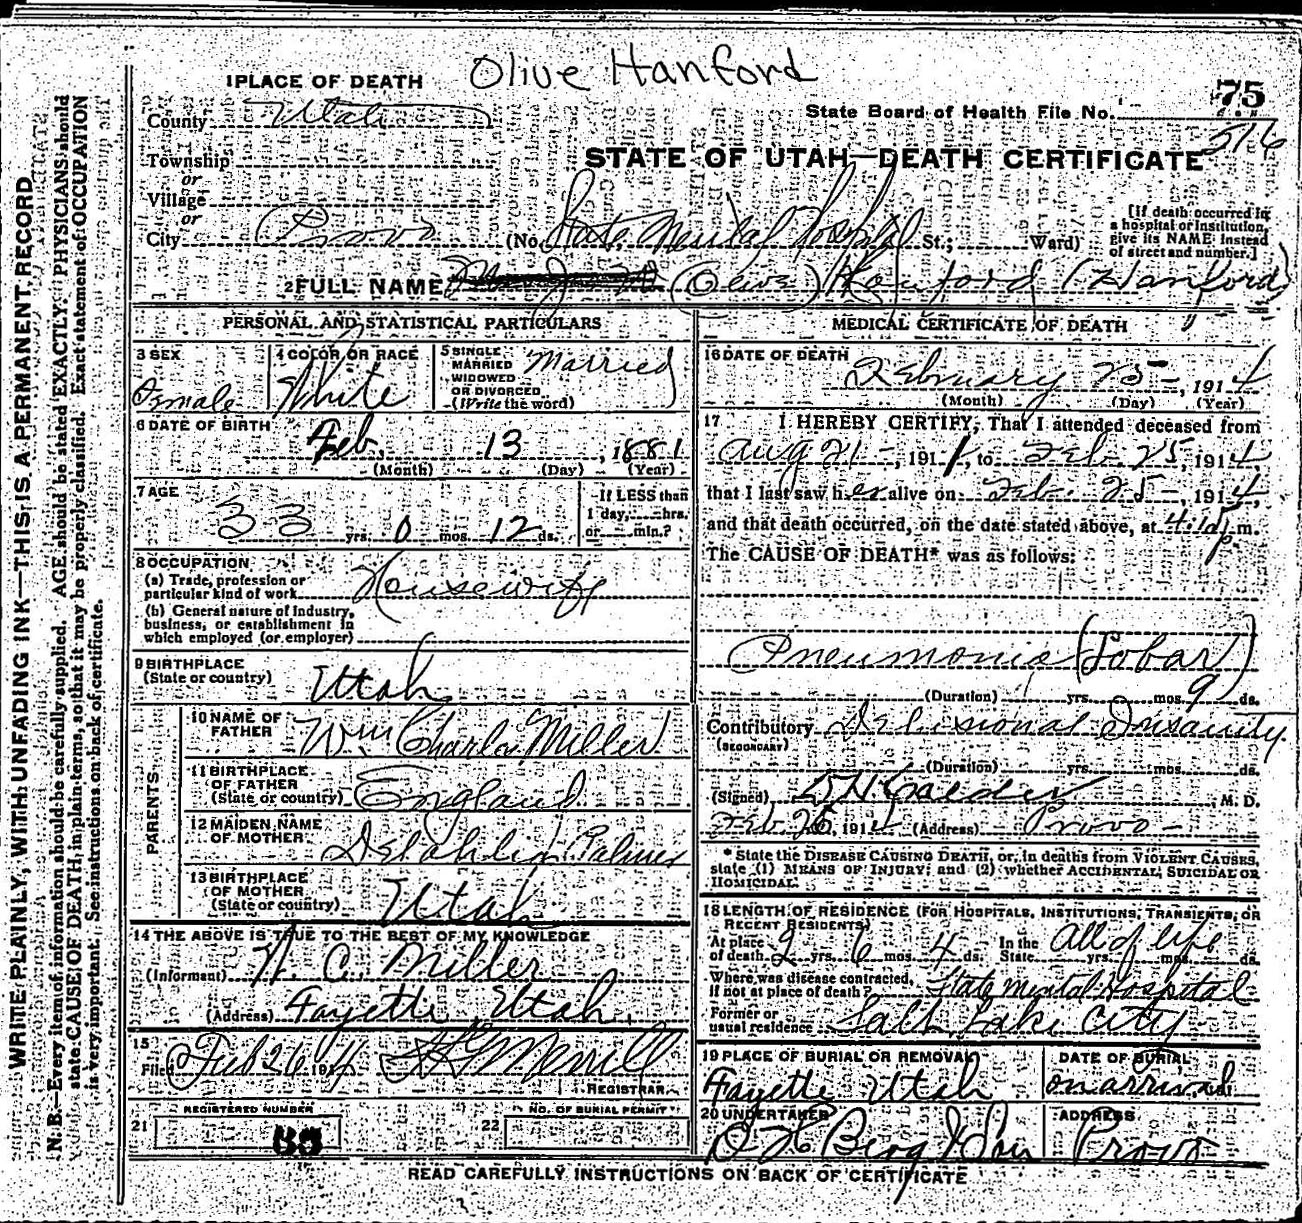 Olive Hanford
1 PLACE OF DEATH
County Utah
State Board of Health File No. 75
516
Township
or
Village
or
City Provo
STATE OF UTAH—DEATH CERTIFICATE
(No. State Mental Hospital St.; Ward)
[If death occurred in
a hospital or institution,
give its NAME instead
of street and number.]
2 FULL NAME (Olive) Hanford (Hanford)
PERSONAL AND STATISTICAL PARTICULARS
3 SEX
Female
4 COLOR OR RACE
White
5 SINGLE
MARRIED
WIDOWED
OR DIVORCED
(Write the word)
Married
6 DATE OF BIRTH
Feb. 13, 1881
(Month) (Day) (Year)
7 AGE
33 yrs. 0 mos. 12 ds.
If LESS than
1 day, hrs.
or min.?
8 OCCUPATION
(a) Trade, profession or
particular kind of work Housewife
(b) General nature of industry,
business, or establishment in
which employed (or employer)
9 BIRTHPLACE
(State or country) Utah
PARENTS
10 NAME OF
FATHER Wm Charles Miller
11 BIRTHPLACE
OF FATHER
(State or country) England
12 MAIDEN NAME
OF MOTHER Palmer
13 BIRTHPLACE
OF MOTHER
(State or country) Utah
14 THE ABOVE IS TRUE TO THE BEST OF MY KNOWLEDGE
(Informant) W. C. Miller
(Address) Fayette Utah
15
Filed Feb 26 1914 Merrill
REGISTRAR
REGISTERED NUMBER
21
NO. OF BURIAL PERMIT
22
MEDICAL CERTIFICATE OF DEATH
16 DATE OF DEATH
February 25, 1914
(Month) (Day) (Year)
17 I HEREBY CERTIFY, That I attended deceased from
Aug 21, 1911, to Feb. 25, 1914,
that I last saw her alive on Feb. 25, 1914,
and that death occurred, on the date stated above, at 4:15 p m.
The CAUSE OF DEATH* was as follows:
Pneumonia (Lobar)
(Duration) yrs. mos. 9 ds.
Contributory Delusional Insanity
(SECONDARY)
(Duration) yrs. mos. ds.
(Signed) Calder M. D.
Feb 26, 1914 (Address) Provo
* State the DISEASE CAUSING DEATH, or, in deaths from VIOLENT CAUSES,
state (1) MEANS OF INJURY; and (2) whether ACCIDENTAL, SUICIDAL OR
HOMICIDAL.
18 LENGTH OF RESIDENCE (FOR HOSPITALS, INSTITUTIONS, TRANSIENTS, OR
RECENT RESIDENTS)
At place
of death 2 yrs. 6 mos. 4 ds. In the
State All of life yrs. mos. ds.
Where was disease contracted,
if not at place of death? State Mental Hospital
Former or
usual residence Salt Lake City
19 PLACE OF BURIAL OR REMOVAL
Fayette Utah
DATE OF BURIAL
on arrival, 191
20 UNDERTAKER
O H Berg & Son
ADDRESS
Provo
READ CAREFULLY INSTRUCTIONS ON BACK OF CERTIFICATE
WRITE PLAINLY, WITH UNFADING INK—THIS IS A PERMANENT RECORD
N. B.—Every item of information should be carefully supplied. AGE should be stated EXACTLY. PHYSICIANS should
state CAUSE OF DEATH, in plain terms, so that it may be properly classified. Exact statement of OCCUPATION
is very important. See instructions on back of certificate.